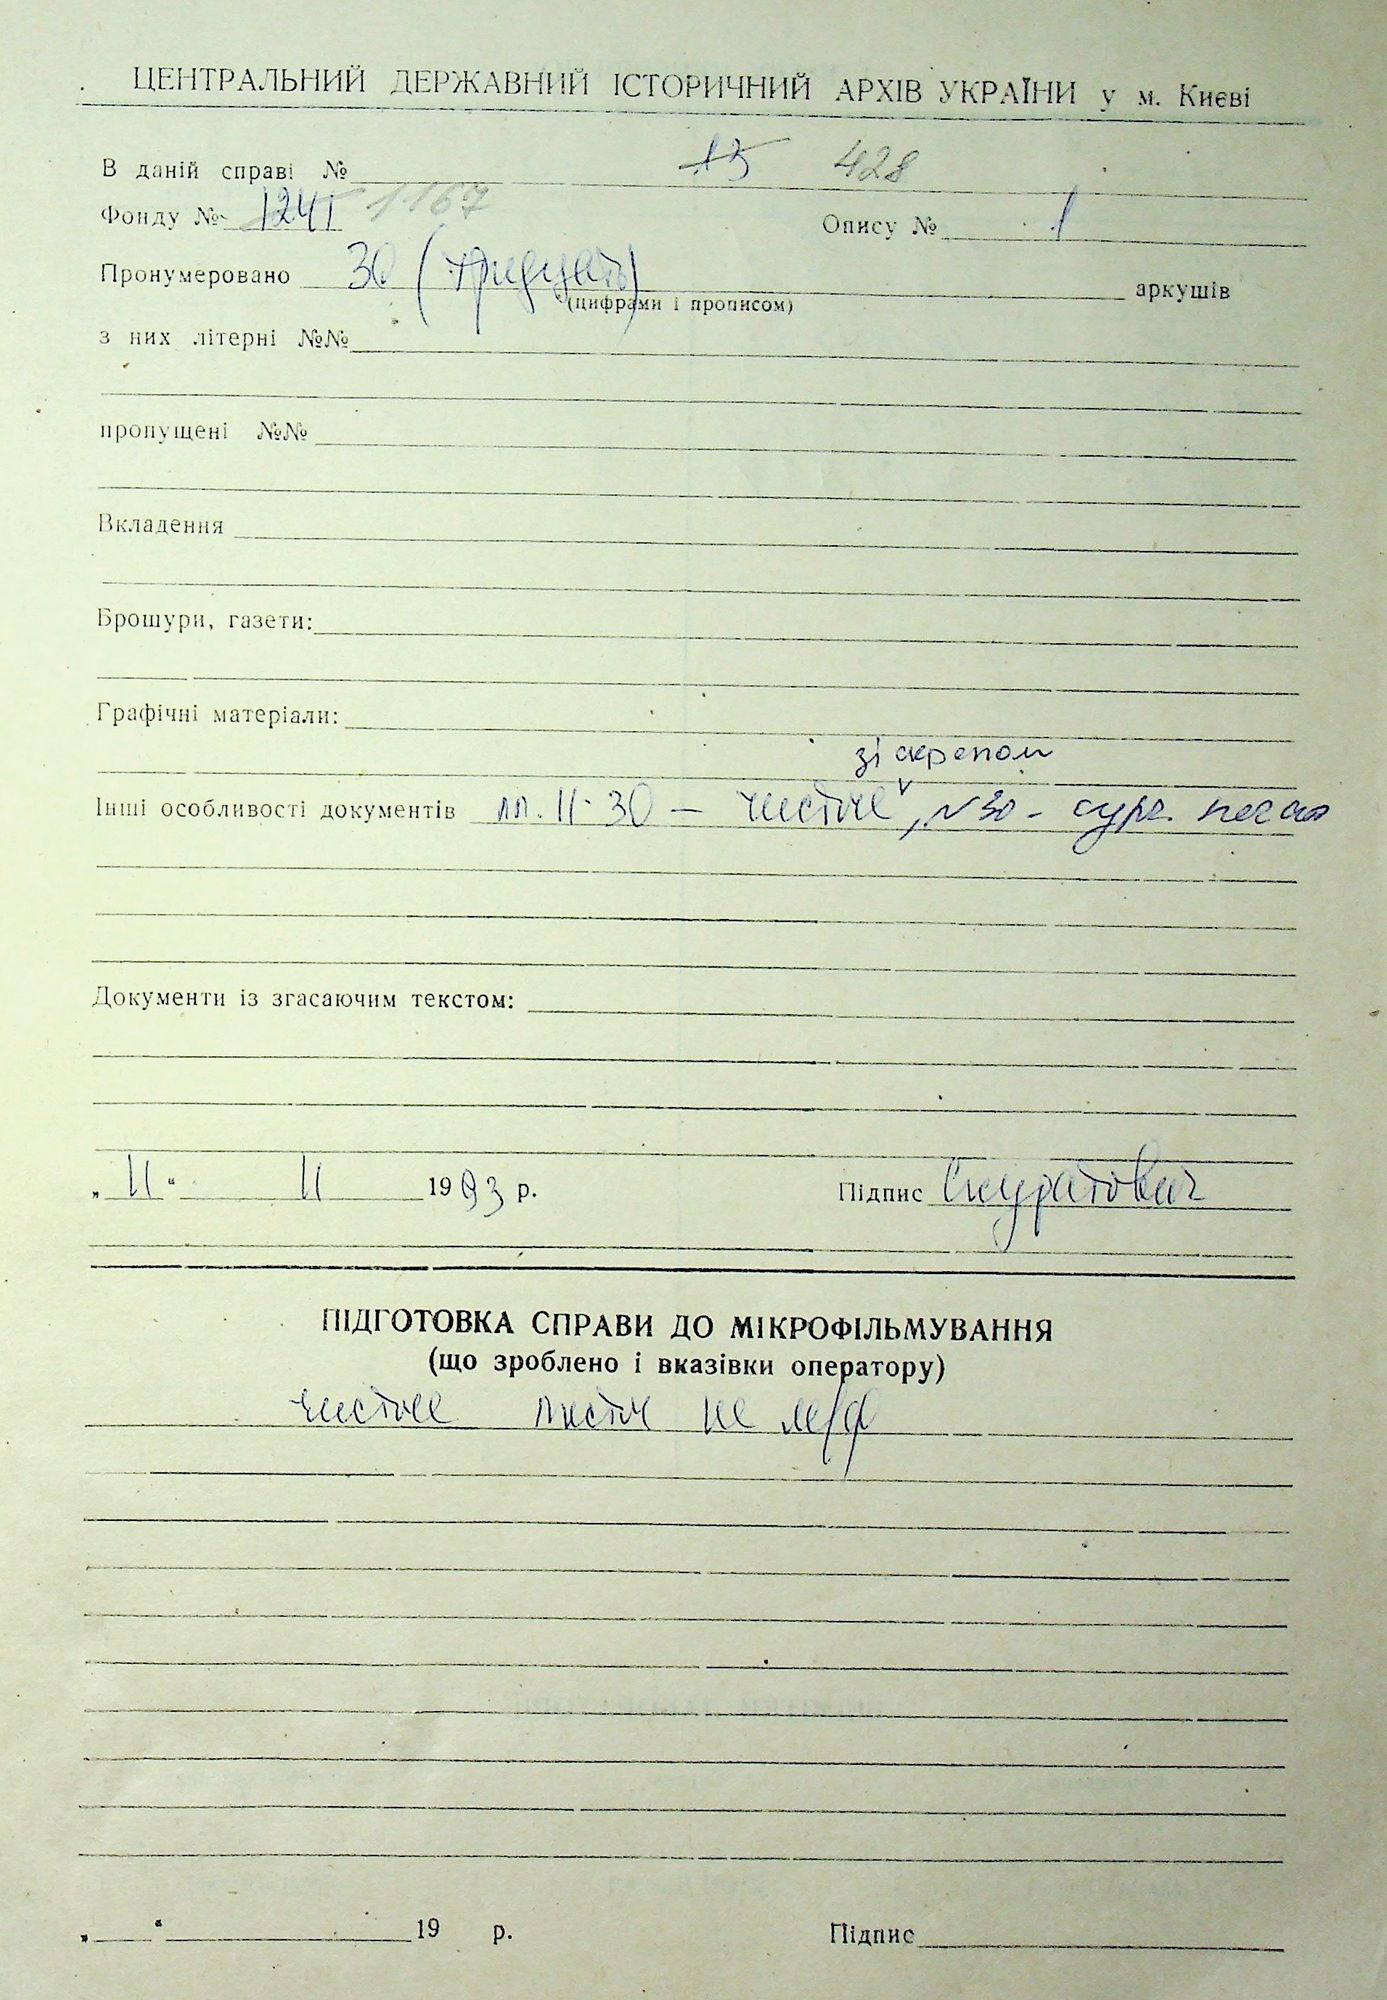 ЦЕНТРАЛЬНИЙ ДЕРЖАВНИЙ ІСТОРИЧНИЙ АРХІВ УКРАЇНИ у м. Києві
В даній справі № 13 428
Фонду № 1241 1167 Опису № 1
Пронумеровано 30 (тридцать) аркушів
(цифрами і прописом)
з них літерні №№
пропущені №№
Вкладення
Брошури, газети:
Графічні матеріали:
зі скрепом
Інші особливості документів лл. 11-30 — чистые, №30 - сург.
Документи із згасаючим текстом:
„11“ 11 1993 р. Підпис Скуратович
ПІДГОТОВКА СПРАВИ ДО МІКРОФІЛЬМУВАННЯ
(що зроблено і вказівки оператору)
чистые листы не м/ф
„ “ 19 р. Підпис